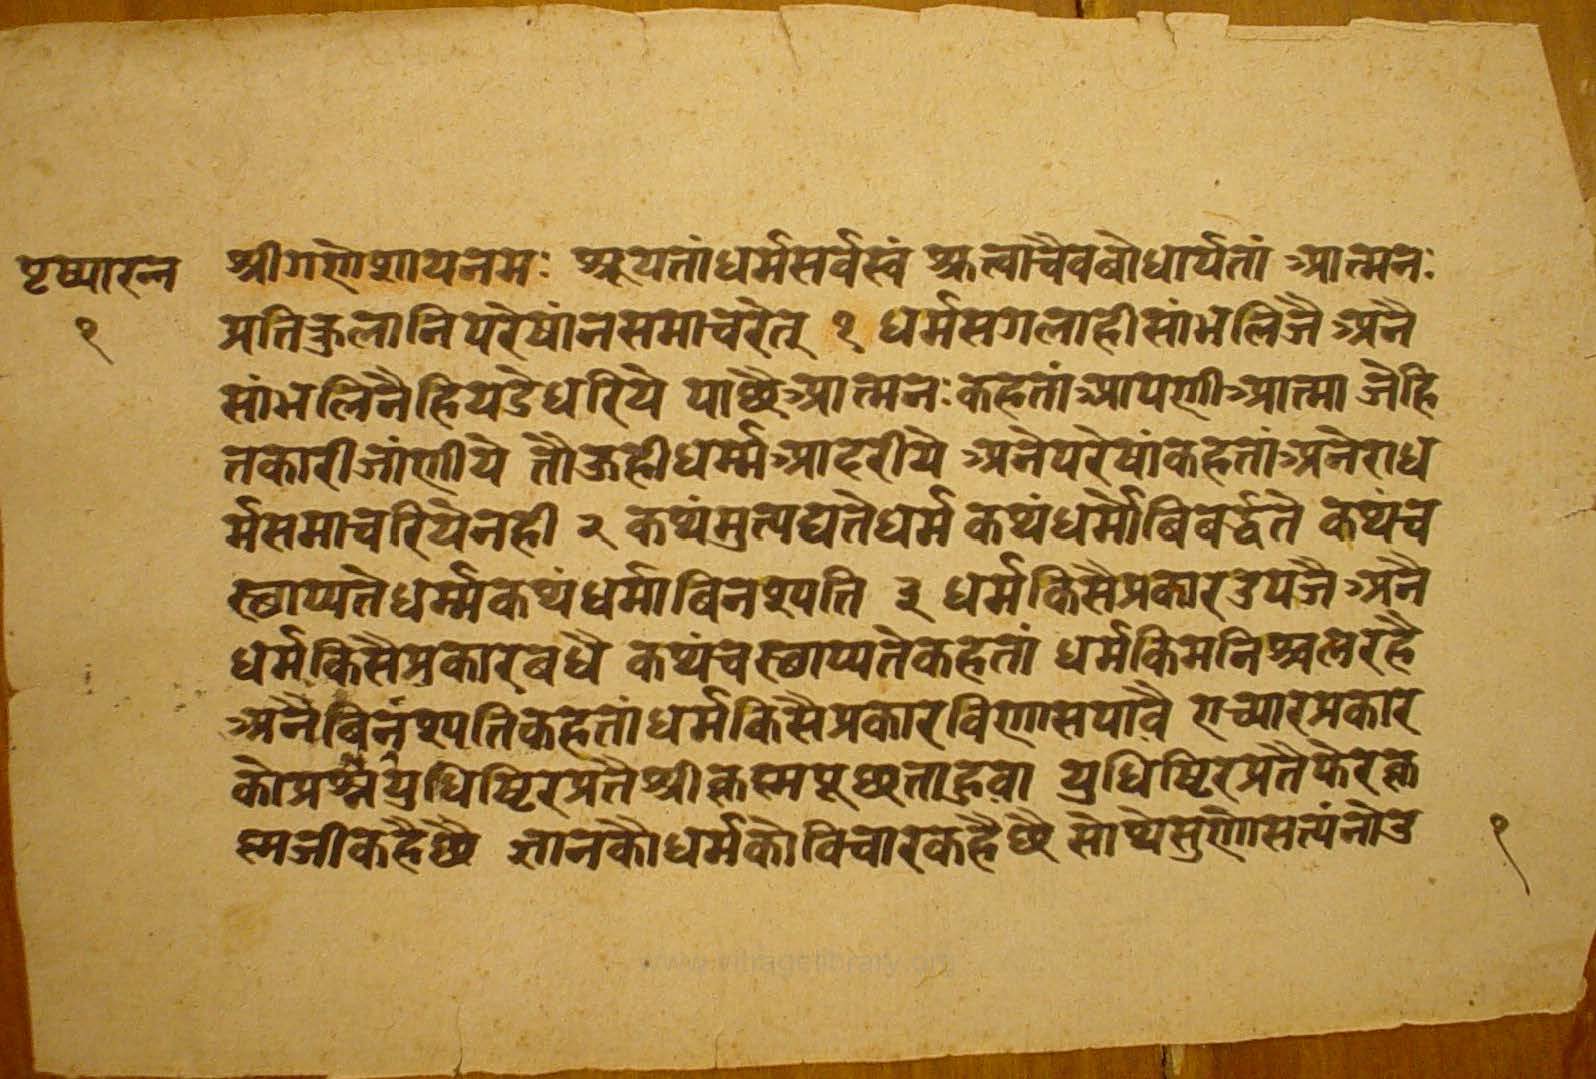 पृष्यारत्न
१
श्रीगणेशायनमः श्रूयतांधर्मसर्वस्वं श्रुत्वाचैवबोधार्यतां आत्मनः
प्रतिकुलानिपरेषांनसमाचरेत् १ धर्मसगलाहीसांभलिजै अनै
सांभलिनैहियडेधरिये पाछैआत्मनः कहतांआपणीआत्मा जेहि
तकारीजांणीये तौऊहीधर्म्मआदरीये अनेपरेषांकहतांअनेराध
र्मसमाचरियेनही २ कथंमुत्पद्यतेधर्म कथंधर्मोबिबर्द्धते कथंच
स्छाप्यतेधर्म्मकथंधर्माबिनश्यति ३ धर्मकिसैप्रकारउपजै अनै
धर्मकिसैप्रकारबधै कथंचस्छाप्यतेकहतां धर्मकिमनिश्चलरहै
अनैबिनंश्यतिकहतांधर्मकिसैप्रकारविणासपावै एच्यारप्रकार
कोप्रश्नयुधिष्टिरप्रतैश्रीकृस्मपूछताहुवा युधिष्टिरप्रतैफेरकृ
स्मजीकहैछै ग्यानकौधर्मकोविचारकहैछै सोथेसुणोसत्यंनोउ
१
www.villagelibrary.org